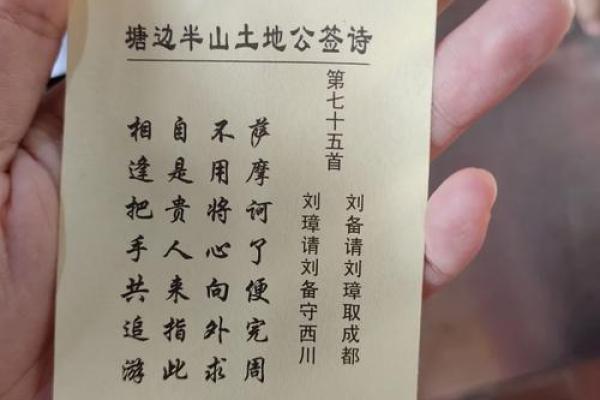 塘边半山土地公签诗
第七十五首
刘备请刘璋取成都
刘璋请刘备守西川
萨摩诃了便完周
不用将心向外求
自是贵人来指此
相逢把手共追游